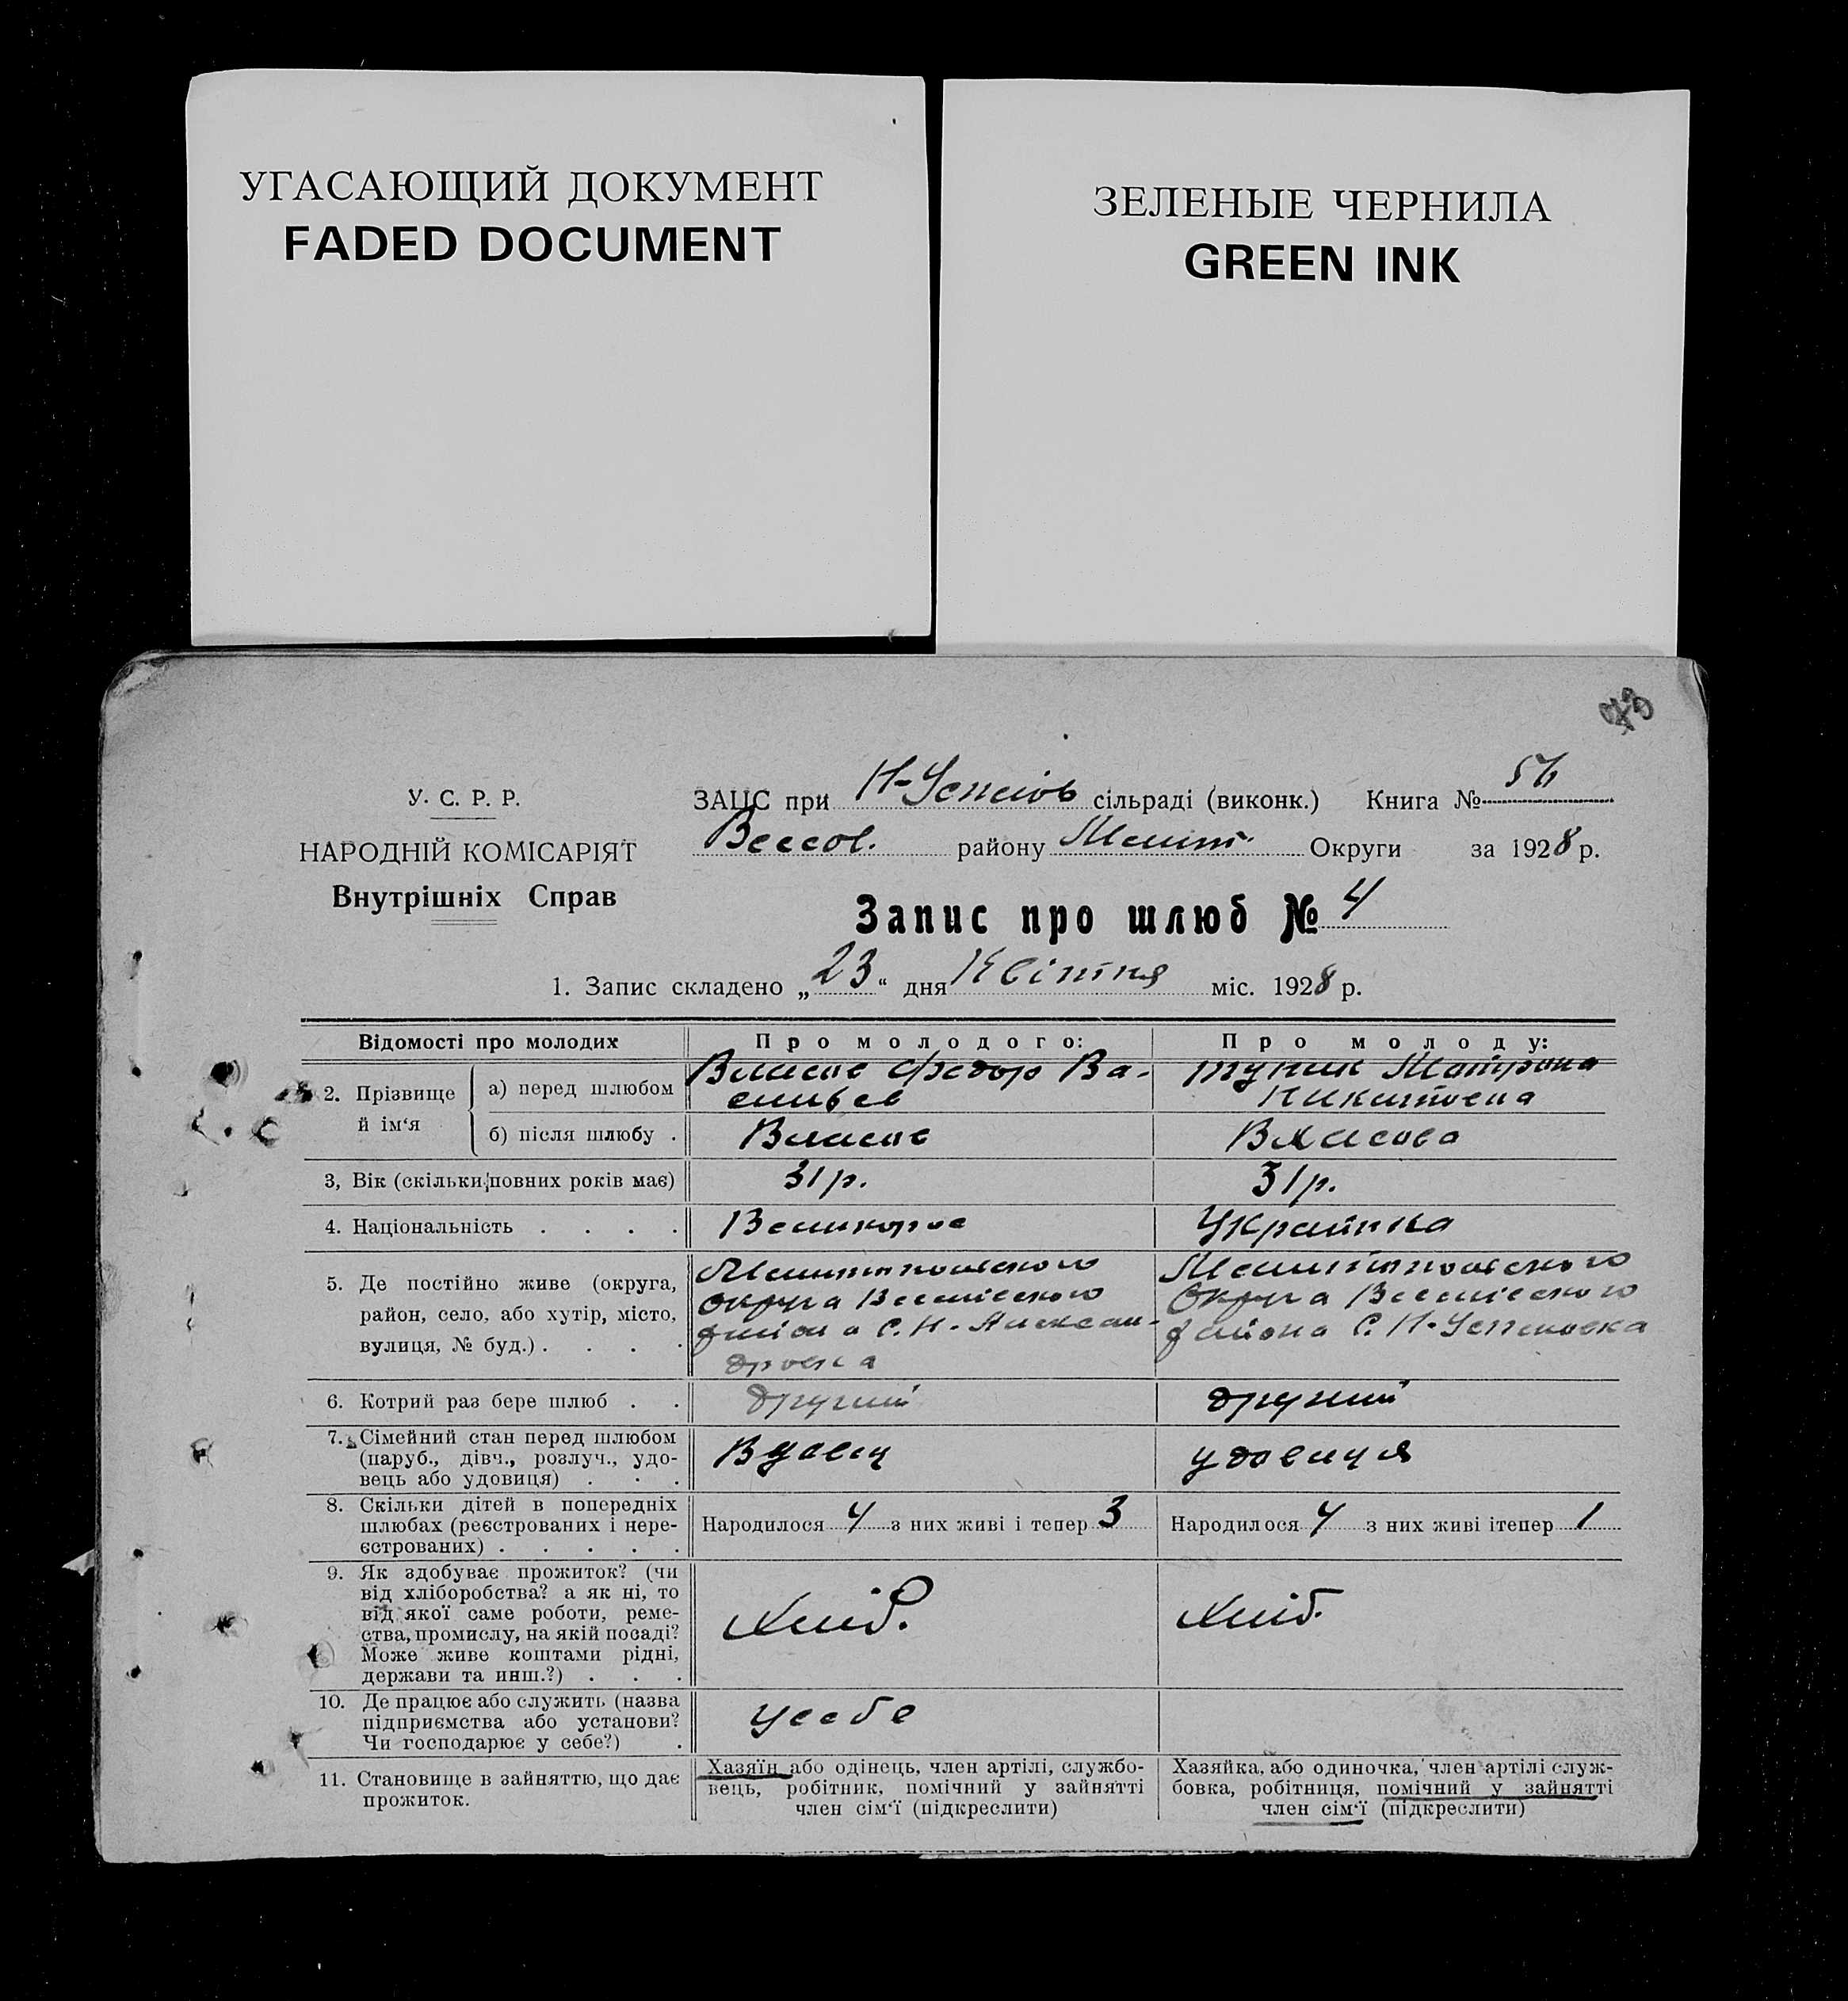 УГАСАЮЩИЙ ДОКУМЕНТ
FADED DOCUMENT
ЗЕЛЕНЫЕ ЧЕРНИЛА
GREEN INK
У. С. Р. Р.
НАРОДНІЙ КОМІСАРІЯТ
Внутрішніх Справ
ЗАЦС при Н-Успенів сільраді (виконк.) Книга №
Весел. району Мелит. Округи за 1928 р.
Запис про шлюб № 4
1. Запис складено „23“ дня Квітня міс. 1928 р.
Відомості про молодих
Про молодого:
Про молоду:
2. Прізвище й ім‘я
а) перед шлюбом
Власов Федор Ва-
сильев
Матрона
Никитовна
б) після шлюбу .
Власов
Власова
3, Вік (скільки повних років має)
31 р.
31 р.
4. Національність . . . .
Великорос
Українка
5. Де постійно живе (округа,
район, село, або хутір, місто,
вулиця, № буд.) . . . .
Мелитопольского
Округа Веселівского
района С. Н-Алексан-
дровка
Мелитопольского
Округа Веселівского
района С. Н-Успеновка
6. Котрий раз бере шлюб . .
другий
другий
7. Сімейний стан перед шлюбом
(паруб., дівч., розлуч., удо-
вець або удовиця) . . .
Вдовец
удовиця
8. Скільки дітей в попередніх
шлюбах (реєстрованих і нере-
єстрованих) . . . . .
Народилося 4 з них живі і тепер 3
Народилося 4 з них живі ітепер 1
9. Як здобуває прожиток? (чи
від хліборобства? а як ні, то
від якої саме роботи, реме-
ства, промислу, на якій посаді?
Може живе коштами рідні,
держави та инш.?) . . .
Хліб.
Хліб.
10. Де працює або служить (назва
підприємства або установи?
Чи господарює у себе?) .
усебе
11. Становище в зайняттю, що дає
прожиток.
Хазяїн або одінець, член артілі, службо-
вець, робітник, помічний у зайнятті
член сім‘ї (підкреслити)
Хазяйка, або одиночка, член артілі служ-
бовка, робітниця, помічний у зайнятті
член сім‘ї (підкреслити)